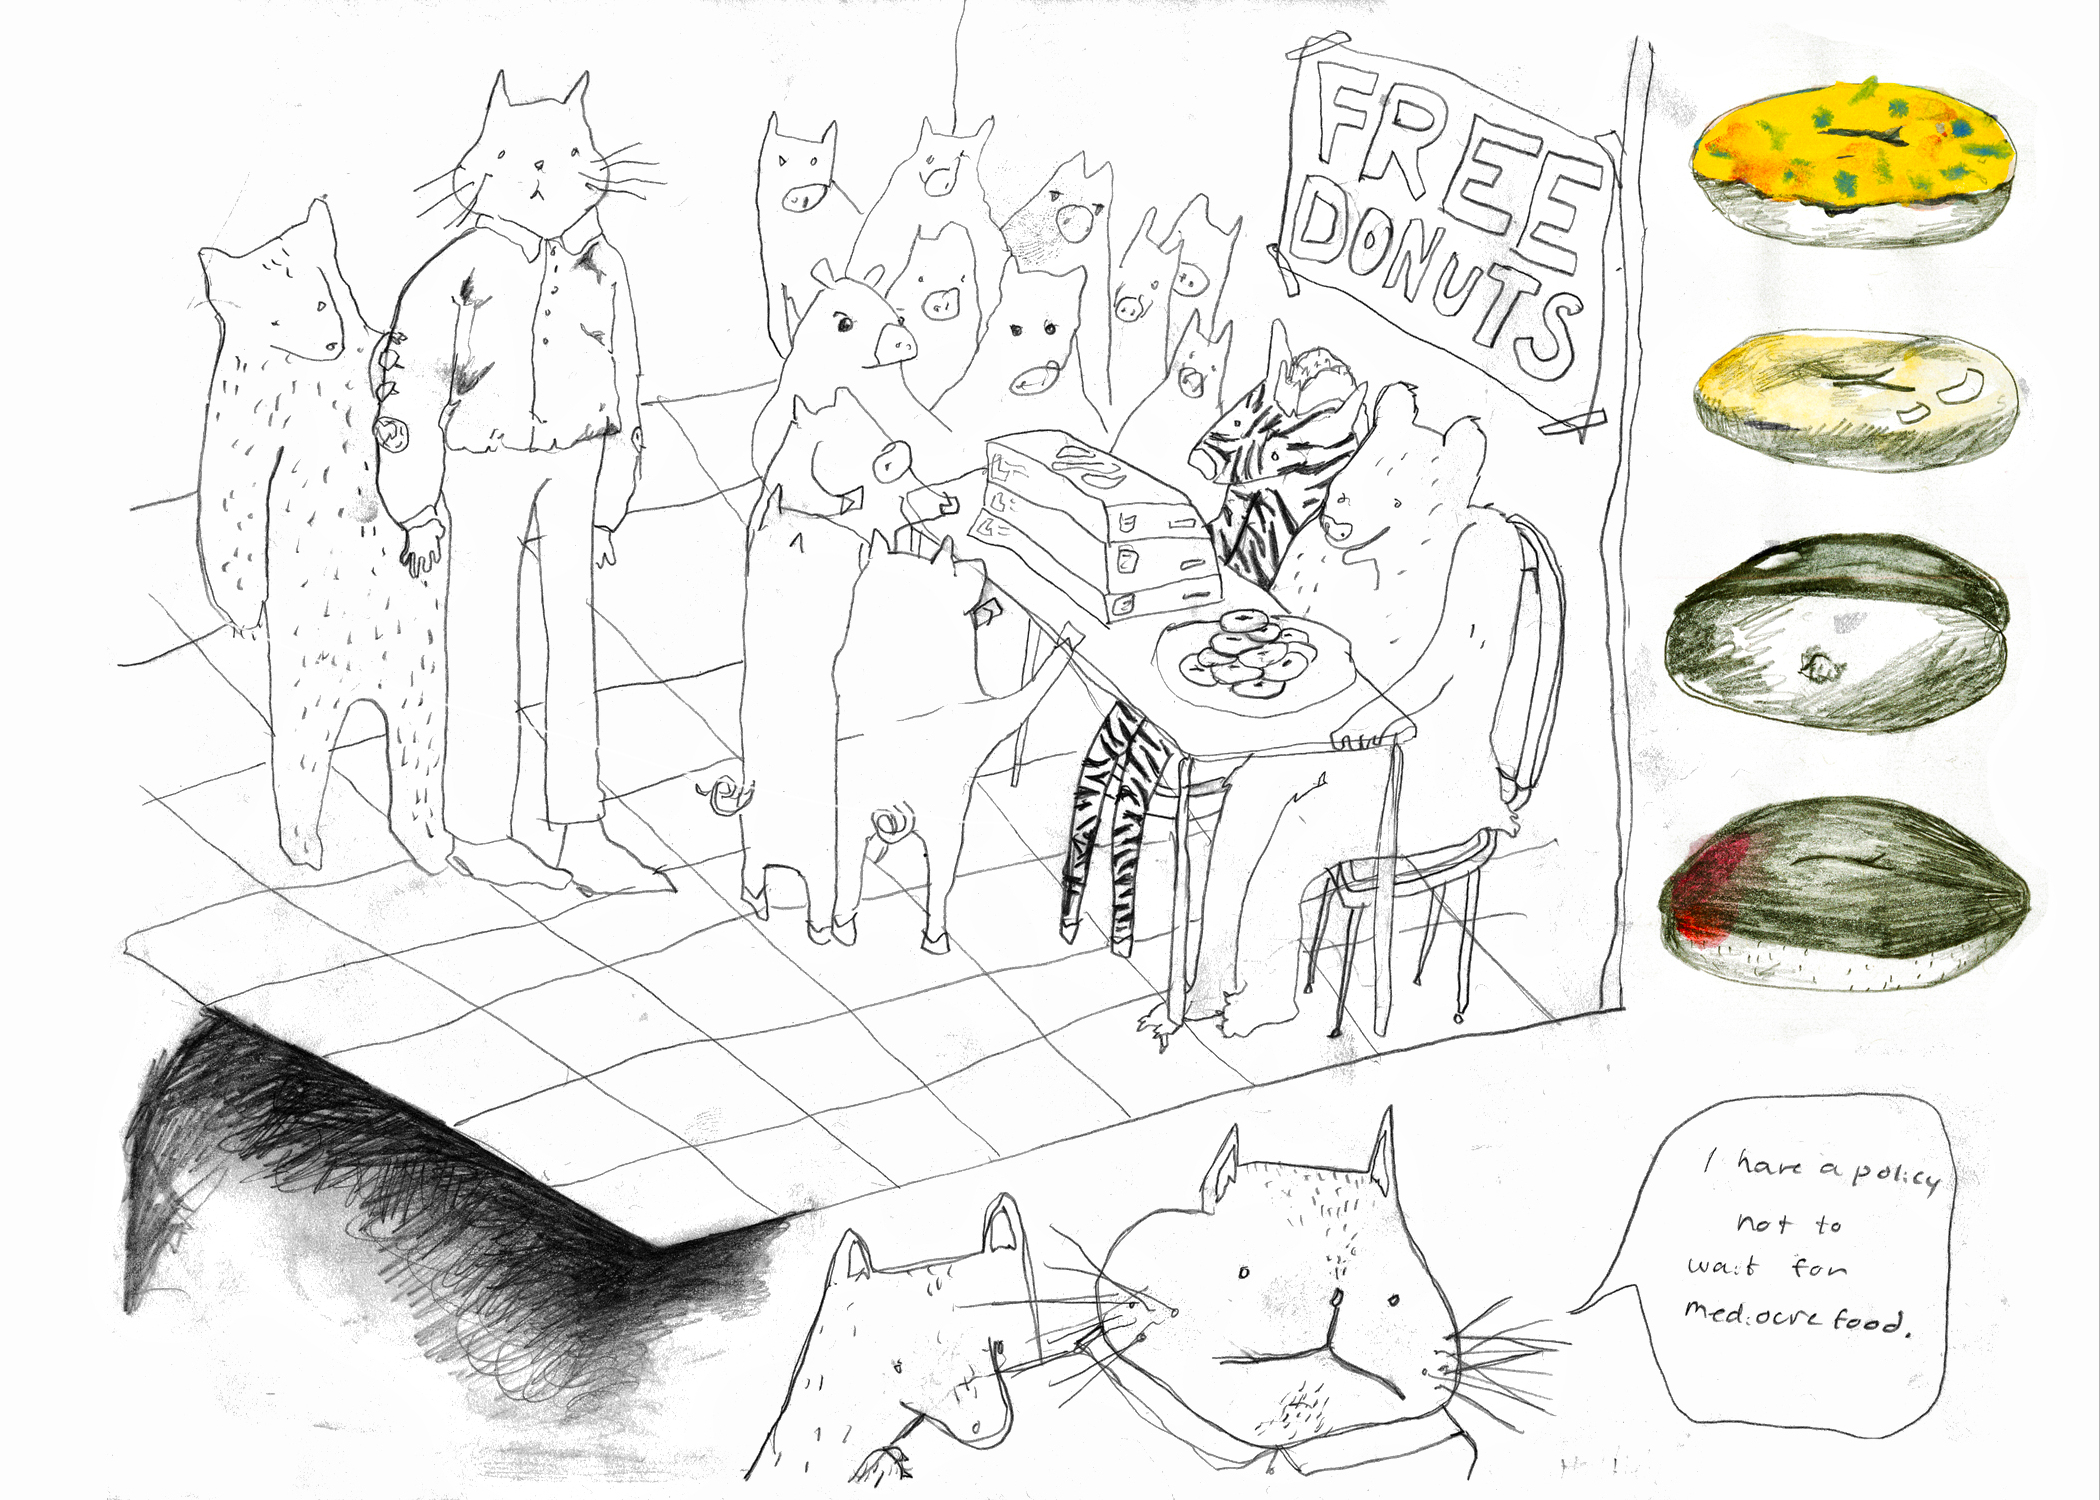 FREE
DONUTS
I have a policy
not to
wait for
mediocre food.